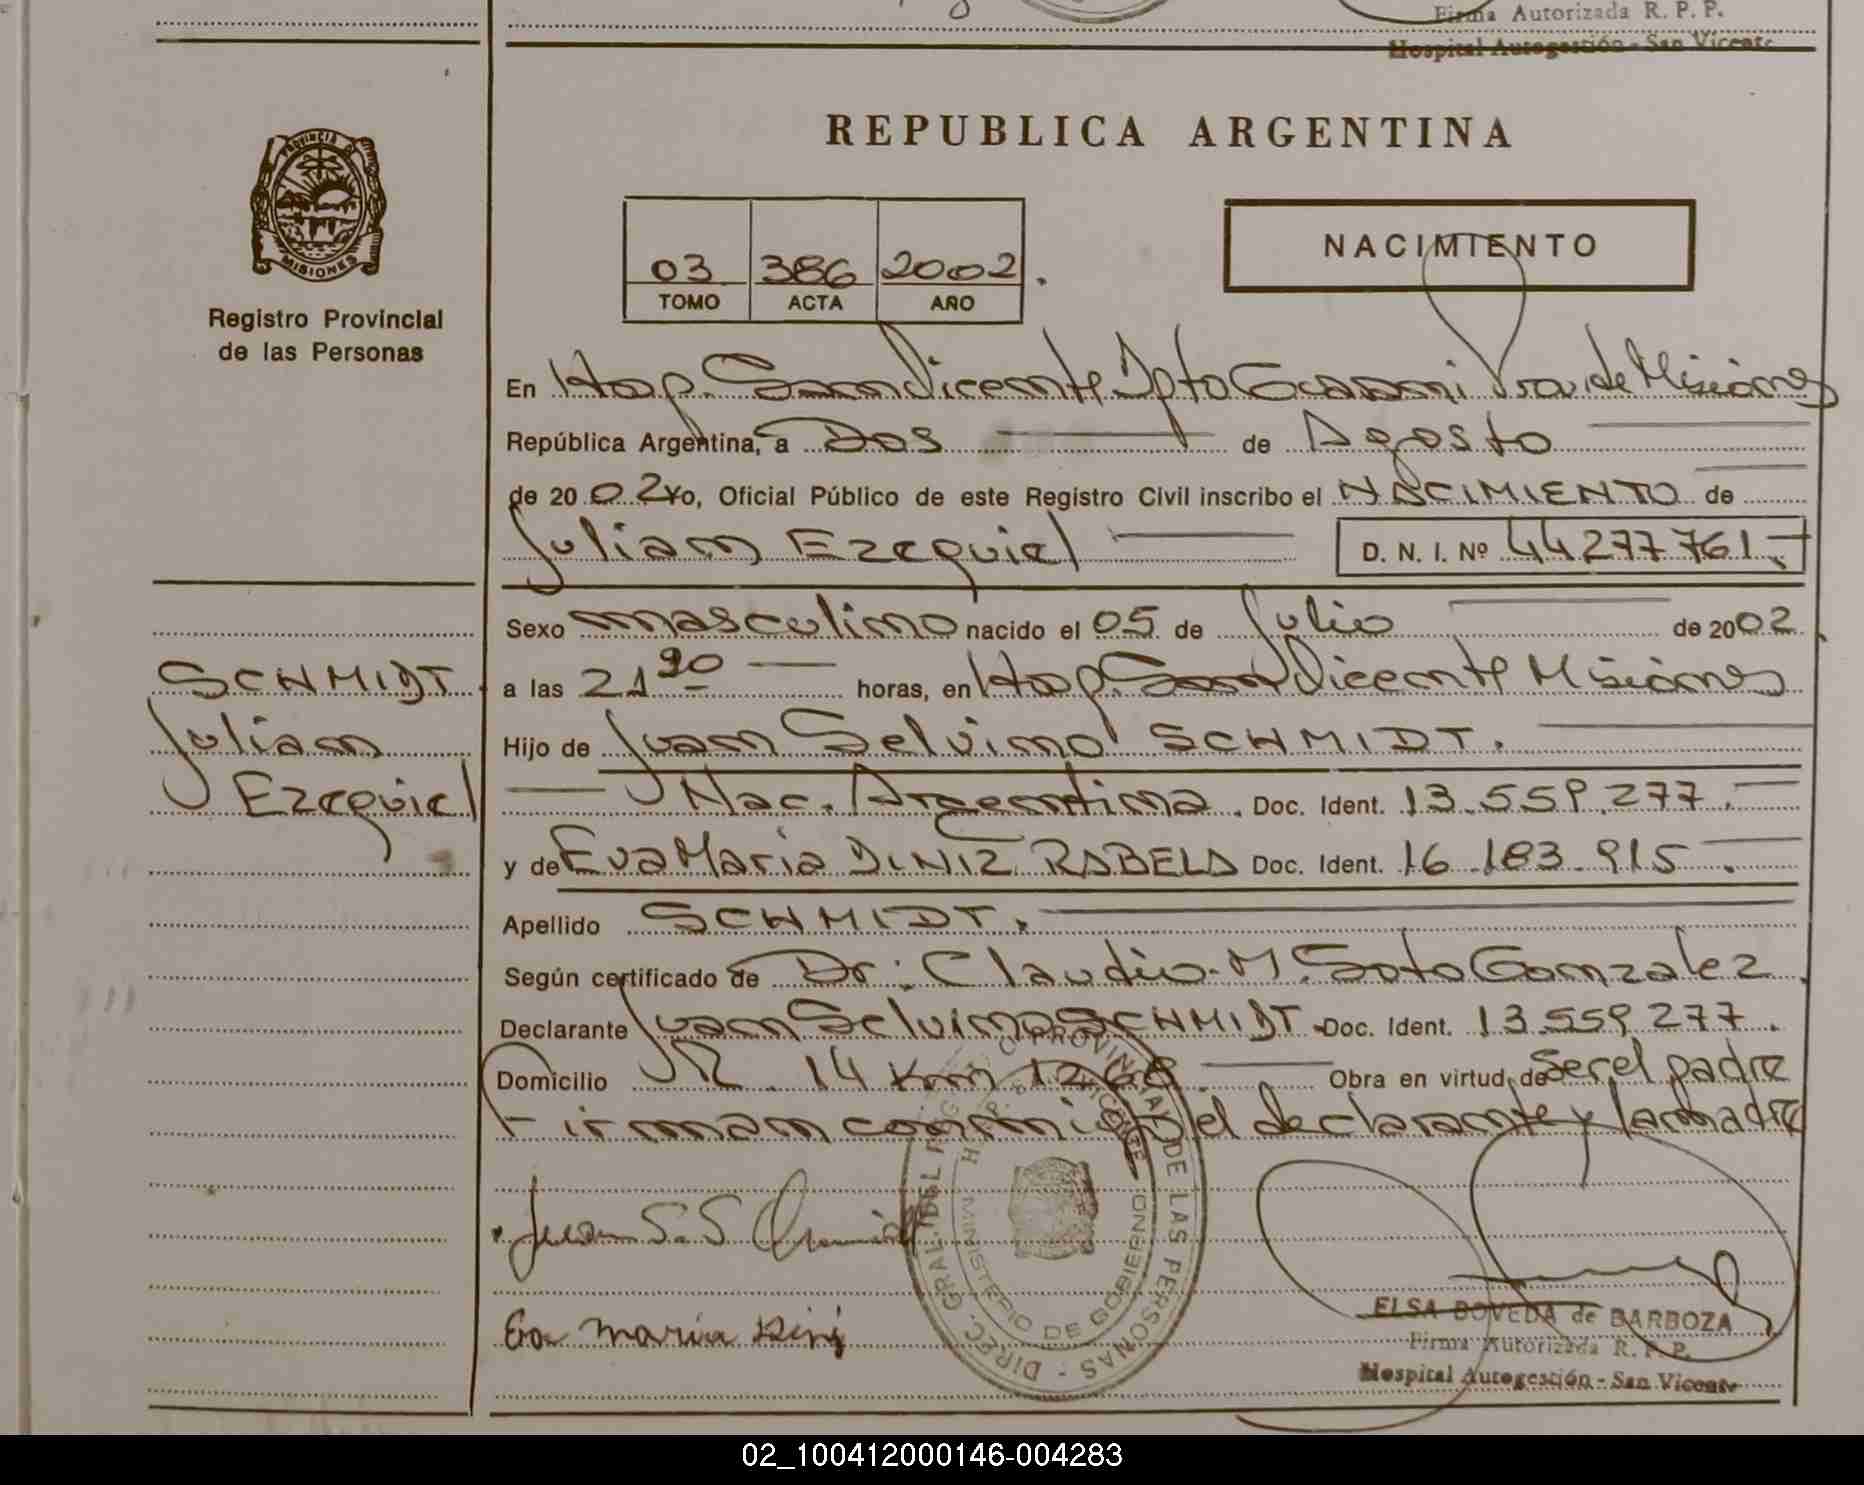 Firma Autorizada R. P. P.
Hospital Autogestión - San Vicente
PROVINCIA DE
MISIONES
Registro Provincial
de las Personas
REPUBLICA ARGENTINA
03 386 2002.
TOMO ACTA AÑO
NACIMIENTO
En Hosp. San Vicente Dpto Guaraní Prov. de Misiones
República Argentina, a Dos de Agosto
de 20 02 Yo, Oficial Público de este Registro Civil inscribo el NACIMIENTO de
Julian Ezequiel D. N. I. Nº 44277761.-
Sexo masculino nacido el 05 de Julio de 2002.
a las 21 horas, en Hosp. San Vicente Misiones
Hijo de Juan Selvino SCHMIDT.
Nac. Argentina. Doc. Ident. 13.559.277.
y de Eva Maria DINIZ RABELA Doc. Ident. 16.183.915.
Apellido SCHMIDT.
Según certificado de Dr: Claudio M. Soto Gonzalez.
Declarante Juan Selvino SCHMIDT Doc. Ident. 13.559.277.
Domicilio R. 14 Km 1268. Obra en virtud de Ser el padre
Firman conmigo el declarante y la madre
SCHMIDT
Julian
Ezequiel
Juan S. S
Eva Maria
DIREC. GRAL. DEL REGISTRO PROVINCIAL DE LAS PERSONAS
MINISTERIO DE GOBIERNO
ELSA BOVEDA de BARBOZA
Firma Autorizada R. P. P.
Hospital Autogestión - San Vicente
02_100412000146-004283